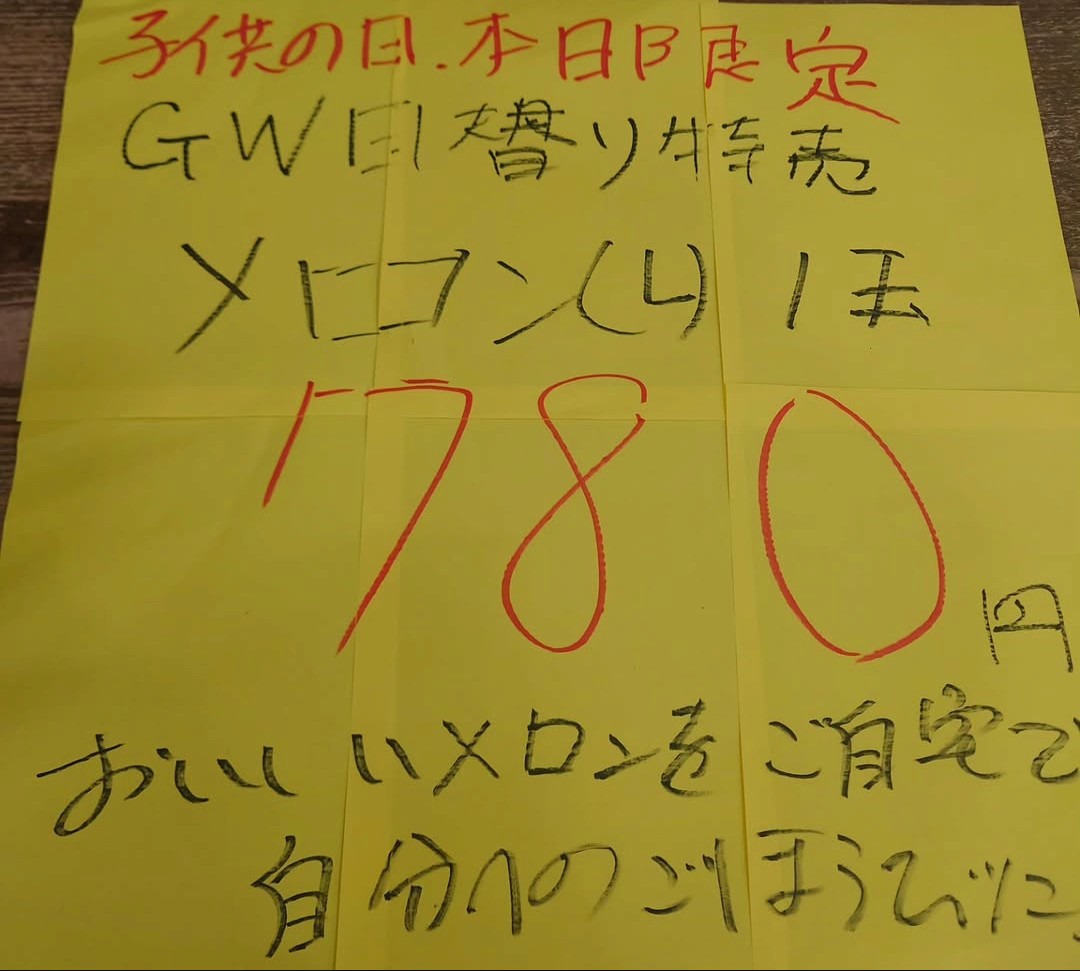 子供の日.本日限定
GW日替り特売
メロン(L)1玉
780円
おいしいメロンをご自宅で
自分へのごほうびに、